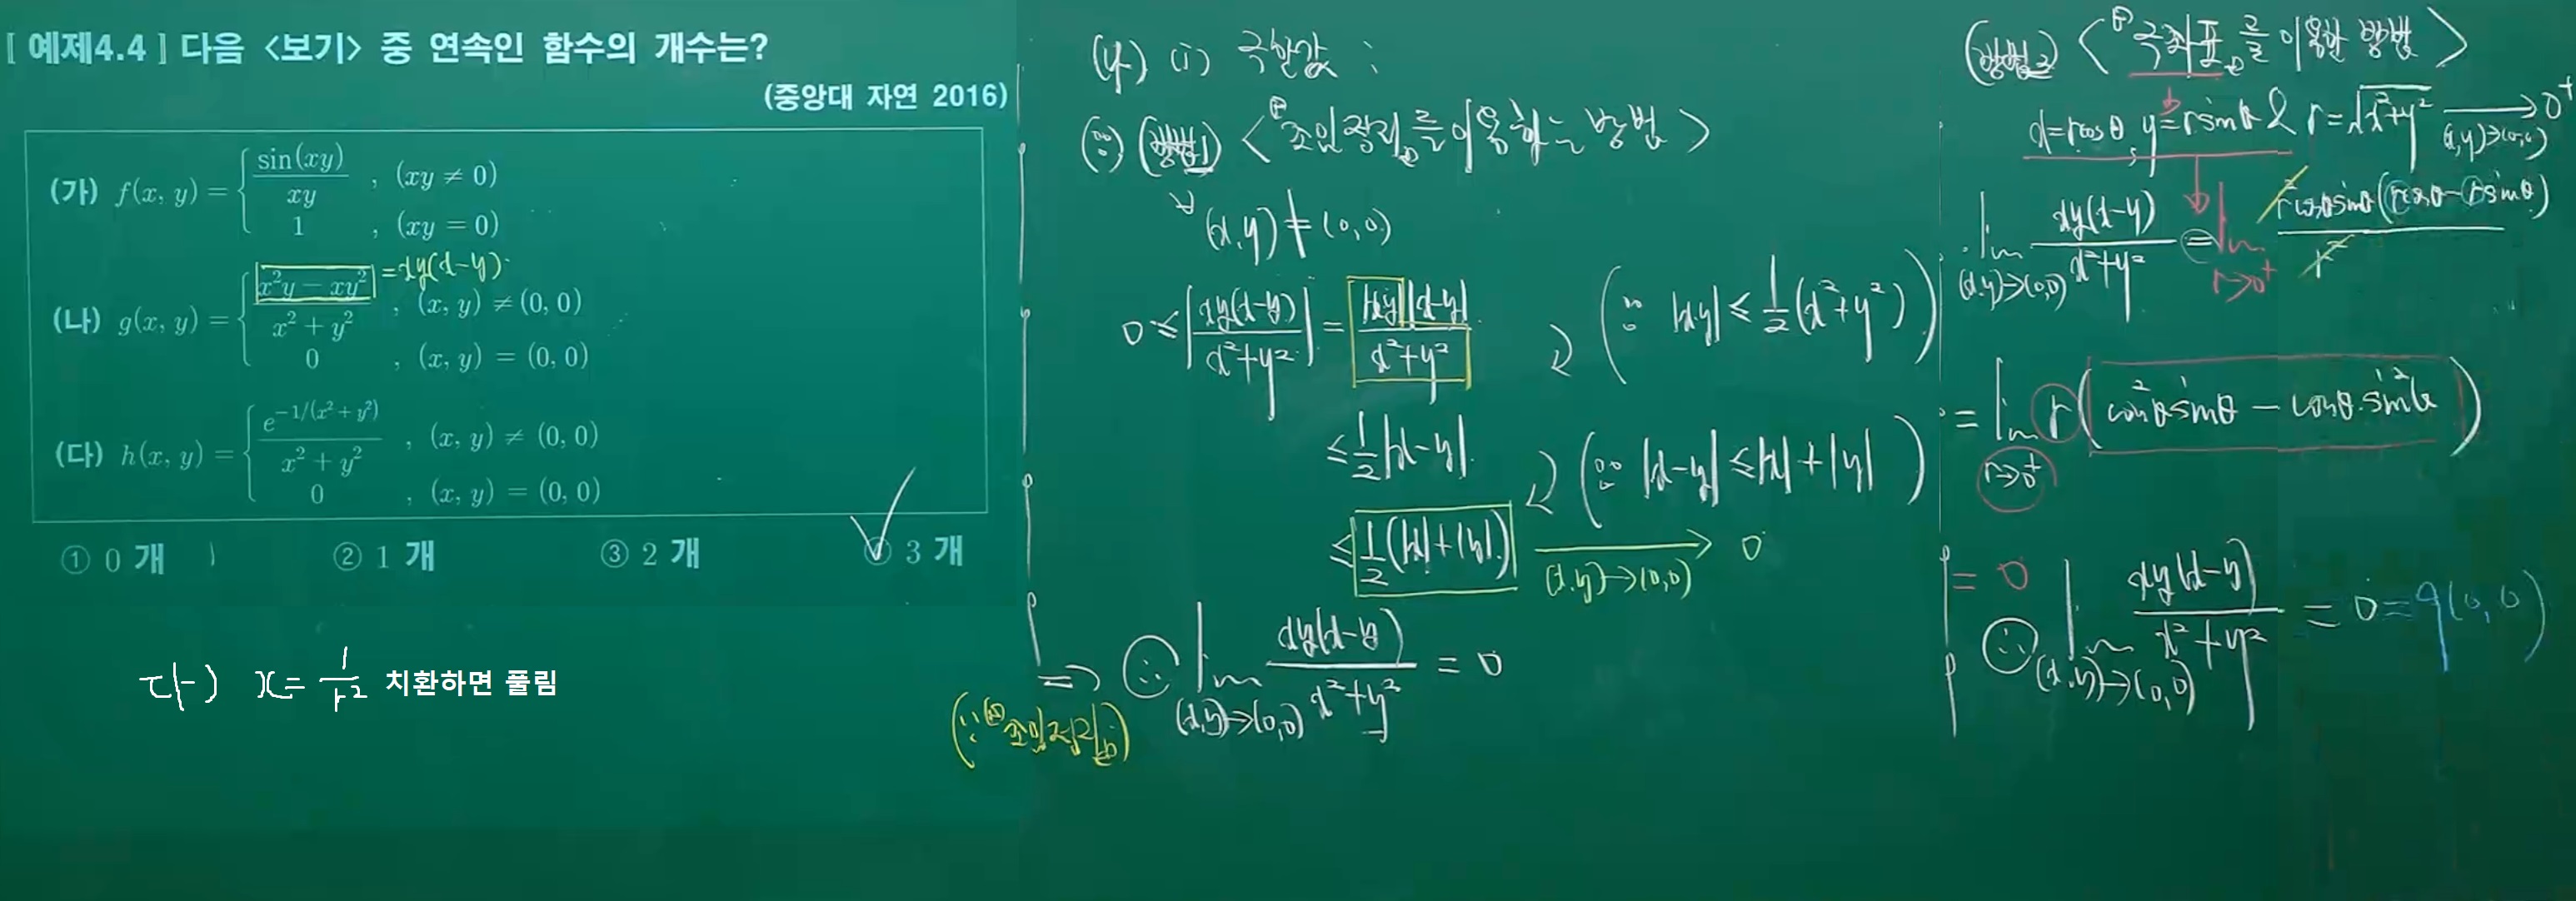 [ 예제4.4 ] 다음 <보기> 중 연속인 함수의 개수는?
(중앙대 자연 2016)
(가) f(x, y) = { sin(xy)/xy , (xy ≠ 0)
1 , (xy = 0)
(나) g(x, y) = { x²y − xy² / x² + y² , (x, y) ≠ (0, 0)
= xy(x−y)
0 , (x, y) = (0, 0)
(다) h(x, y) = { e^{-1/(x² + y²)} / x² + y² , (x, y) ≠ (0, 0)
0 , (x, y) = (0, 0)
① 0 개 ② 1 개 ③ 2 개 ④ 3 개
다) x = 1/r² 치환하면 풀림
(나) (i) 극한값 :
(∵) (방법1) < 조임정리를 이용하는 방법 >
∀(x, y) ≠ (0, 0)
0 ≤ |xy(x−y) / x²+y²| = |xy||x−y| / x²+y² (∵ |xy| ≤ 1/2 (x²+y²))
≤ 1/2 |x−y| (∵ |x−y| ≤ |x|+|y|)
≤ 1/2 (|x|+|y|) → 0
(x,y)→(0,0)
⇒ ∴ lim (x,y)→(0,0) xy(x−y) / x²+y² = 0
(∵ 조임정리)
(방법2) < 극좌표를 이용한 방법 >
x=rcosθ, y=rsinθ & r=√x²+y² → 0⁺
(x,y)→(0,0)
lim (x,y)→(0,0) xy(x−y) / x²+y² = lim r→0⁺ r²cosθsinθ(rcosθ−rsinθ) / r²
= lim r→0⁺ r(cos²θsinθ − cosθ·sin²θ)
= 0
∴ lim (x,y)→(0,0) xy(x−y) / x²+y² = 0 = g(0,0)